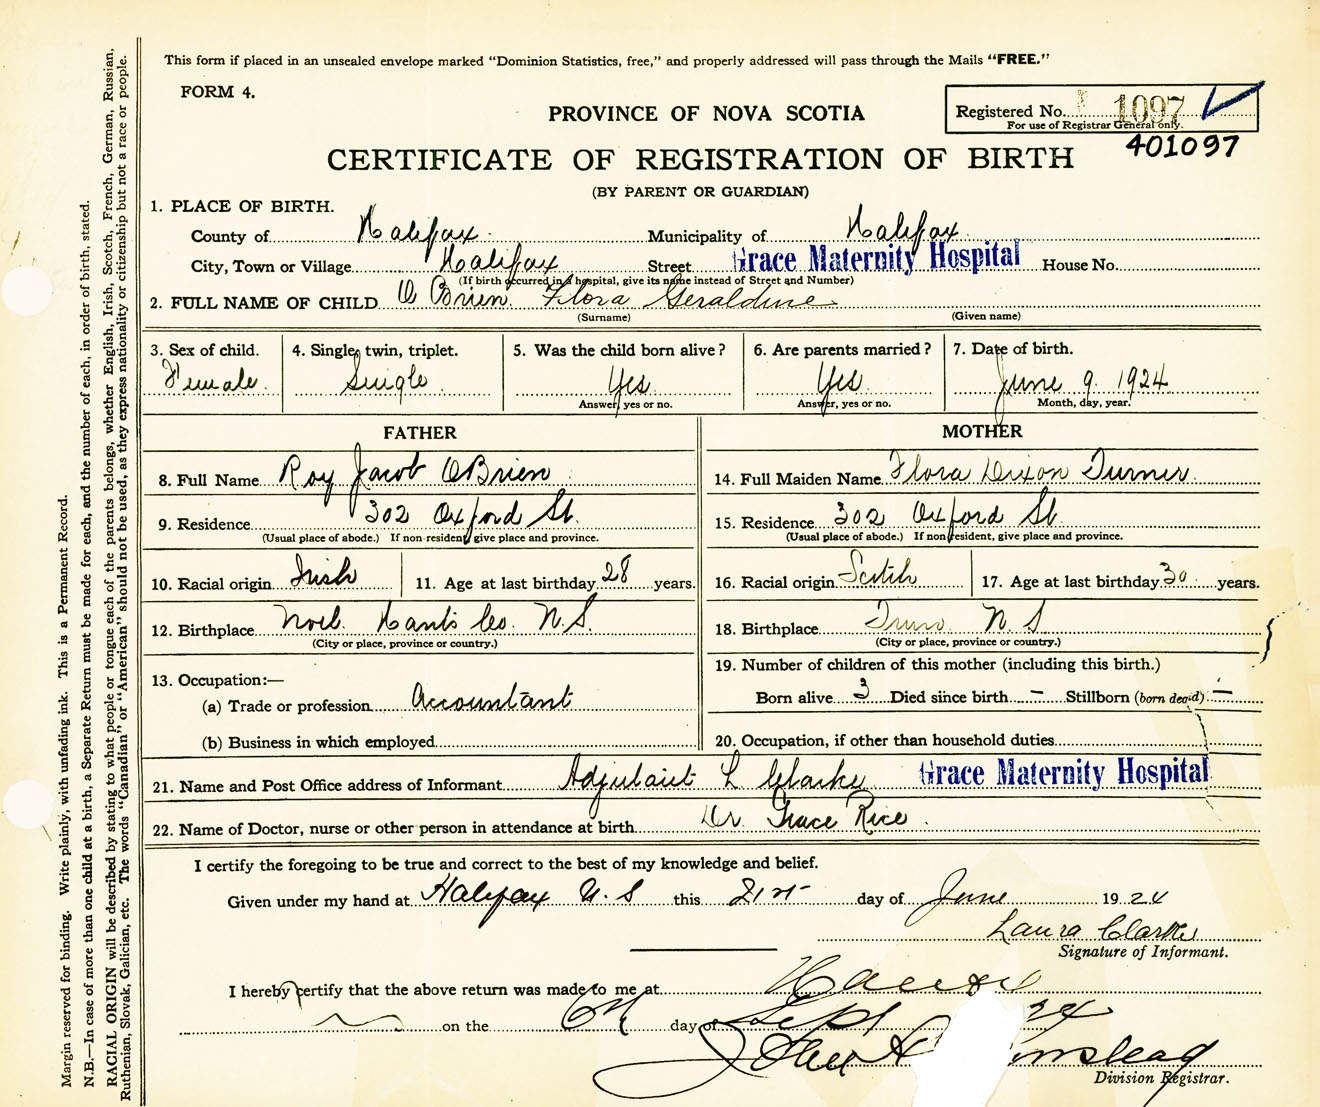 This form if placed in an unsealed envelope marked "Dominion Statistics, free," and properly addressed will pass through the Mails "FREE."
FORM 4.
PROVINCE OF NOVA SCOTIA
Registered No. 1097
For use of Registrar General only.
401097
CERTIFICATE OF REGISTRATION OF BIRTH
(BY PARENT OR GUARDIAN)
1. PLACE OF BIRTH.
County of Halifax Municipality of Halifax
City, Town or Village Halifax Street Grace Maternity Hospital House No.
(If birth occurred in a hospital, give its name instead of Street and Number)
2. FULL NAME OF CHILD O Brien Flora Geraldine
(Surname) (Given name)
3. Sex of child. 4. Single, twin, triplet. 5. Was the child born alive? 6. Are parents married? 7. Date of birth.
Female Single Yes Yes June 9. 1924
Answer, yes or no. Answer, yes or no. Month, day, year.
FATHER MOTHER
8. Full Name Roy Jacob OBrien 14. Full Maiden Name Flora Dixon Turner
9. Residence 302 Oxford St. 15. Residence 302 Oxford St
(Usual place of abode.) If non-resident, give place and province. (Usual place of abode.) If non-resident, give place and province.
10. Racial origin Irish 11. Age at last birthday 28 years. 16. Racial origin Scotch 17. Age at last birthday 30 years.
12. Birthplace Noel Hants Co. N.S. 18. Birthplace Truro N S
(City or place, province or country.) (City or place, province or country.)
19. Number of children of this mother (including this birth.)
13. Occupation:—
(a) Trade or profession Accountant Born alive 3 Died since birth - Stillborn (born dead) -
(b) Business in which employed 20. Occupation, if other than household duties
21. Name and Post Office address of Informant Adjutant L Clarke Grace Maternity Hospital
22. Name of Doctor, nurse or other person in attendance at birth Dr. Grace Rice.
I certify the foregoing to be true and correct to the best of my knowledge and belief.
Given under my hand at Halifax N. S this 21st day of June 1924
Laura Clarke
Signature of Informant.
I hereby certify that the above return was made to me at
on the day of Sept 24
John
Division Registrar.
Margin reserved for binding. Write plainly, with unfading ink. This is a Permanent Record.
N.B.—In case of more than one child at a birth, a Separate Return must be made for each, and the number of each, in order of birth, stated.
RACIAL ORIGIN will be described by stating to what people or tongue each of the parents belongs, whether English, Irish, Scotch, French, German, Russian,
Ruthenian, Slovak, Galician, etc. The words "Canadian" or "American" should not be used, as they express nationality or citizenship but not a race or people.